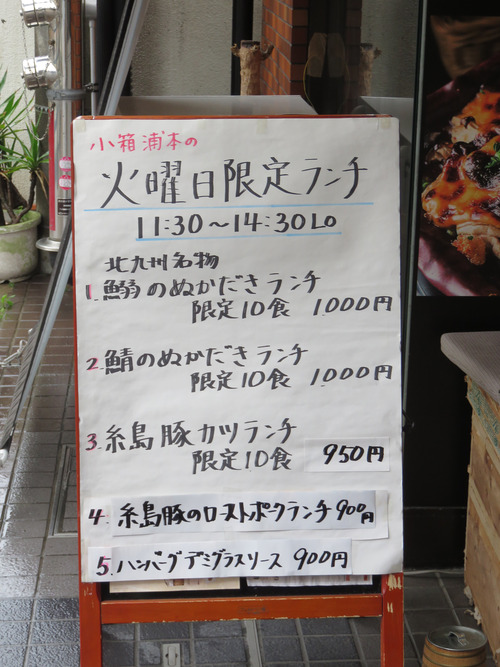 小箱浦本の
火曜日限定ランチ
11:30～14:30LO
北九州名物
1. 鰯のぬかだきランチ
限定10食 1,000円
2. 鯖のぬかだきランチ
限定10食 1,000円
3. 糸島豚カツランチ
限定10食 950円
4. 糸島豚のローストポークランチ 900円
5. ハンバーグデミグラスソース 900円